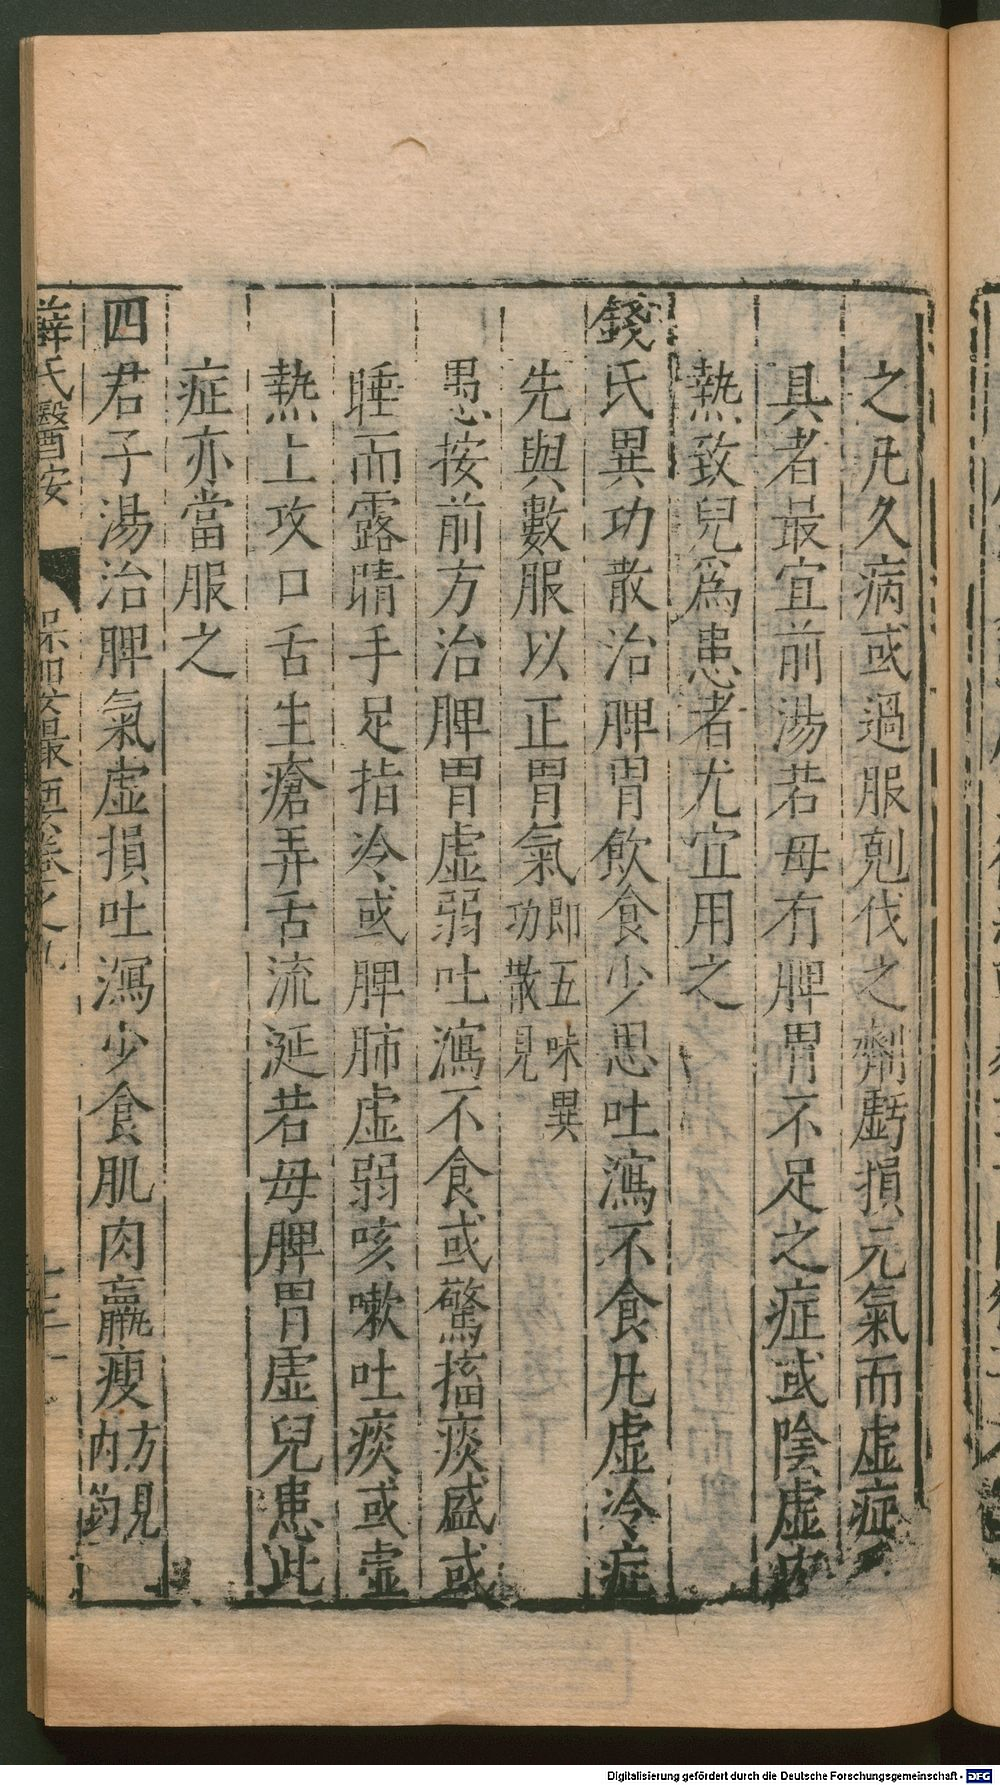 之凡久病或過服剋伐之劑虧損元氣而虛症
具者最宜前湯若母有脾胃不足之症或陰虛
熱致兒爲患者尤宜用之
錢氏異功散治脾胃飲食少思吐瀉不食凡虛冷症
先與數服以正胃氣即五味異
功散見
愚按前方治脾胃虛弱吐瀉不食或驚搐痰盛或
睡而露睛手足指冷或脾肺虛弱咳嗽吐痰或虛
熱上攻口舌生瘡弄舌流涎若母脾胃虛兒患此
症亦當服之
四君子湯治脾氣虛損吐瀉少食肌肉羸瘦方見
內鈞
薛氏醫按
保嬰撮要卷之九
Digitalisierung gefördert durch die Deutsche Forschungsgemeinschaft - DFG